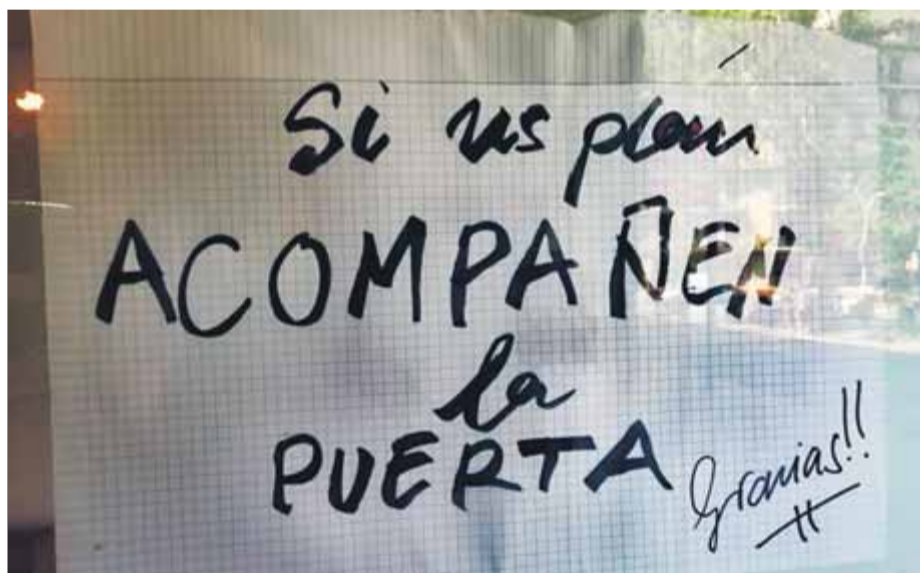 Si us plau
ACOMPAÑEN
la
PUERTA
Gracias!!